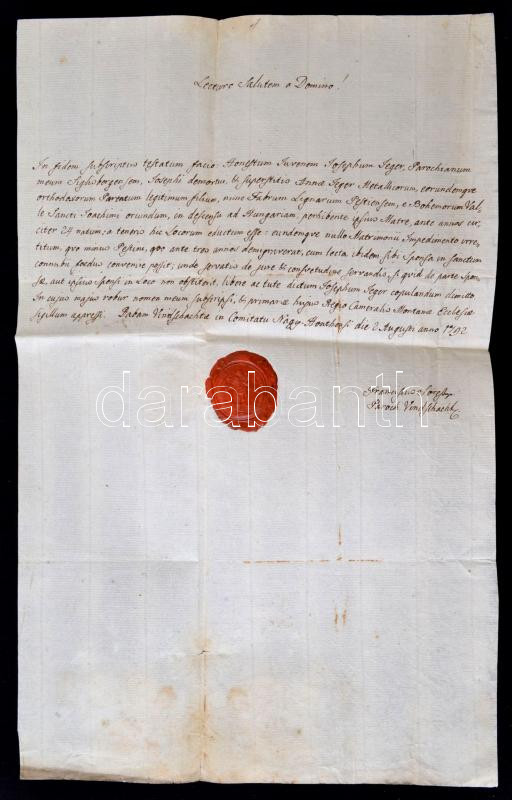 Lecturo Salutem a Domino!
In fidem subscriptus testatum facio: Honestum Juvenem Josephum Jeger, Parochianum
meum Siglsbergensem, Josephi demortui, & superstitis Annæ Jeger Metallicorum, eorundemque
orthodoxorum Parentum legitimum filium, nunc Fabrum Lignarum Pestiensem, e Bohemorum Val-
le Sancti Joachimi oriundum, in descensu ad Hungariam, perhibente ipsius Matre, ante annos cir-
citer 24 natum, a tenero hic Locorum eductum esse: eundemque nullo Matrimonii Impedimento irre-
titum, quo minus Pestini, quo ante tres annos demigraverat, cum lecta ibidem sibi Sponsa in sanctum
connubii foedus convenire possit, unde servatis de jure & consvetudine servandis, si quid de parte Spon-
sæ, aut ipsius sponsi in Loco non obstiterit, libere ac tute dictum Josephum Jeger copulandum dimitto
In cujus majus robur nomen meum subscripsi, & primariæ hujus Regio Cameralis Montanæ Ecclesiæ
sigillum appressi. Dabam Vindschachtæ in Comitatu Nagy-Honthensi die 2 Augusti anno 1792
Franciscus
Paroch Vindschacht
darabanth